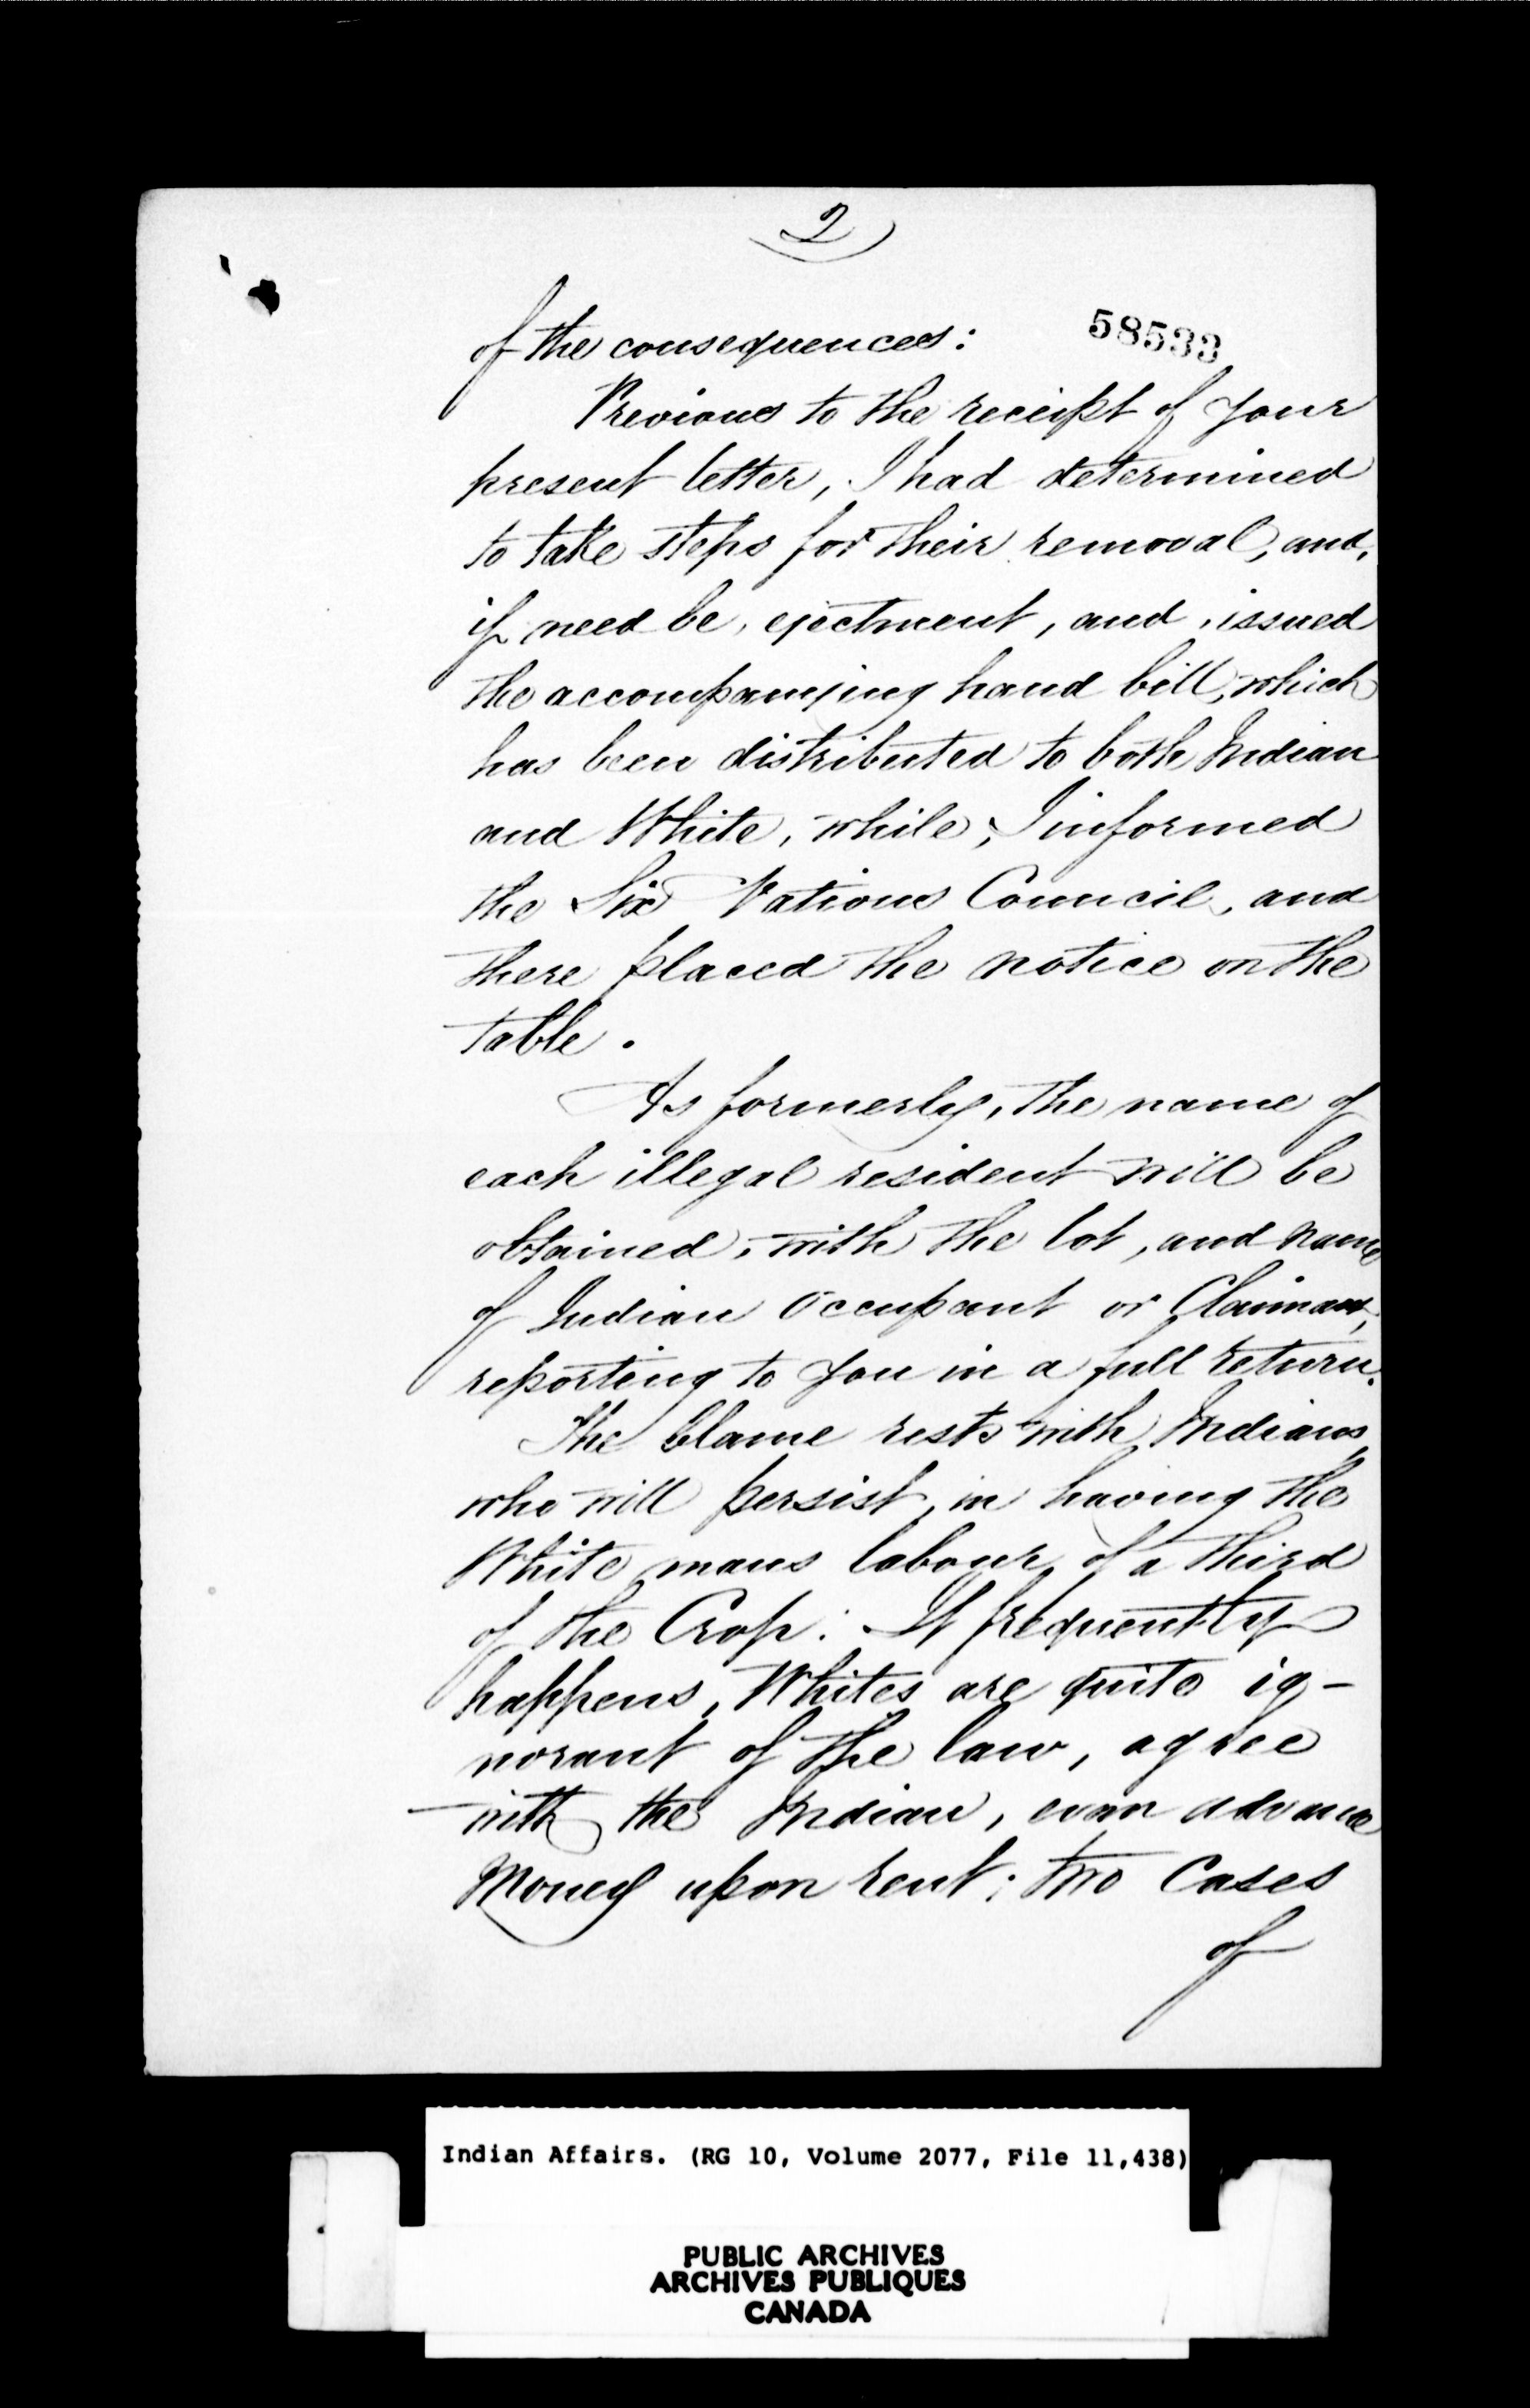 2
58533
of the consequences:
Previous to the receipt of your
present letter, I had determined
to take steps for their removal, and,
if need be, ejectment, and, issued
the accompanying hand bill, which
has been distributed to both Indian
and White, while, I informed
the Six Nations Council, and
there placed the notice on the
table.
As formerly, the name of
each illegal resident will be
obtained, with the lot, and name
of Indian occupant or Claimant,
reporting to you in a full return.
The blame rests with Indians,
who will persist, in having the
White mans labour of a third
of the Crop: It frequently
happens, Whites are quite ig-
norant of the law, agree
with the Indian, even advance
Money upon rent; two Cases
of
Indian Affairs. (RG 10, Volume 2077, File 11,438)
PUBLIC ARCHIVES
ARCHIVES PUBLIQUES
CANADA